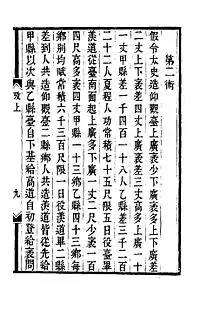 第二術
假令太史造仰觀臺上廣袤少下廣袤多上下廣差
二丈上下袤差四丈上廣袤差三丈高多上廣一十
一丈甲縣差一千四百一十八人乙縣差三千二百
二十二人夏程人功常積七十五尺限五日役臺畢
羨道從臺南面起上廣多下廣一丈二尺少袤一百
四尺高多袤四丈甲縣一十三鄉乙縣四十三鄉每
鄉別均賦常積六千三百尺限一日役羨道畢二縣
差到人共造仰觀臺二縣鄉人共造羨道皆從先給
甲縣以次與乙縣臺自下基給高道自初登給袤問
上 九